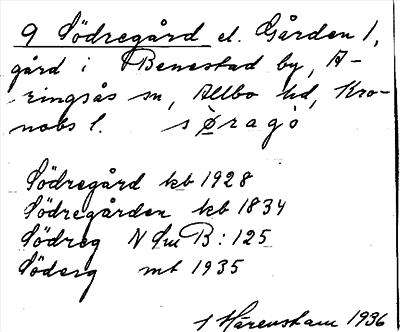 9 Södregård el. Gården 1,
gård i Benestad by, A-
ringsås sn, Allbo hd, Kro-
nobs l. søragò
Södregård kb 1928
Södregården kb 1834
Södreg N Sm B: 125
Söderg mt 1935
Härenstam 1936